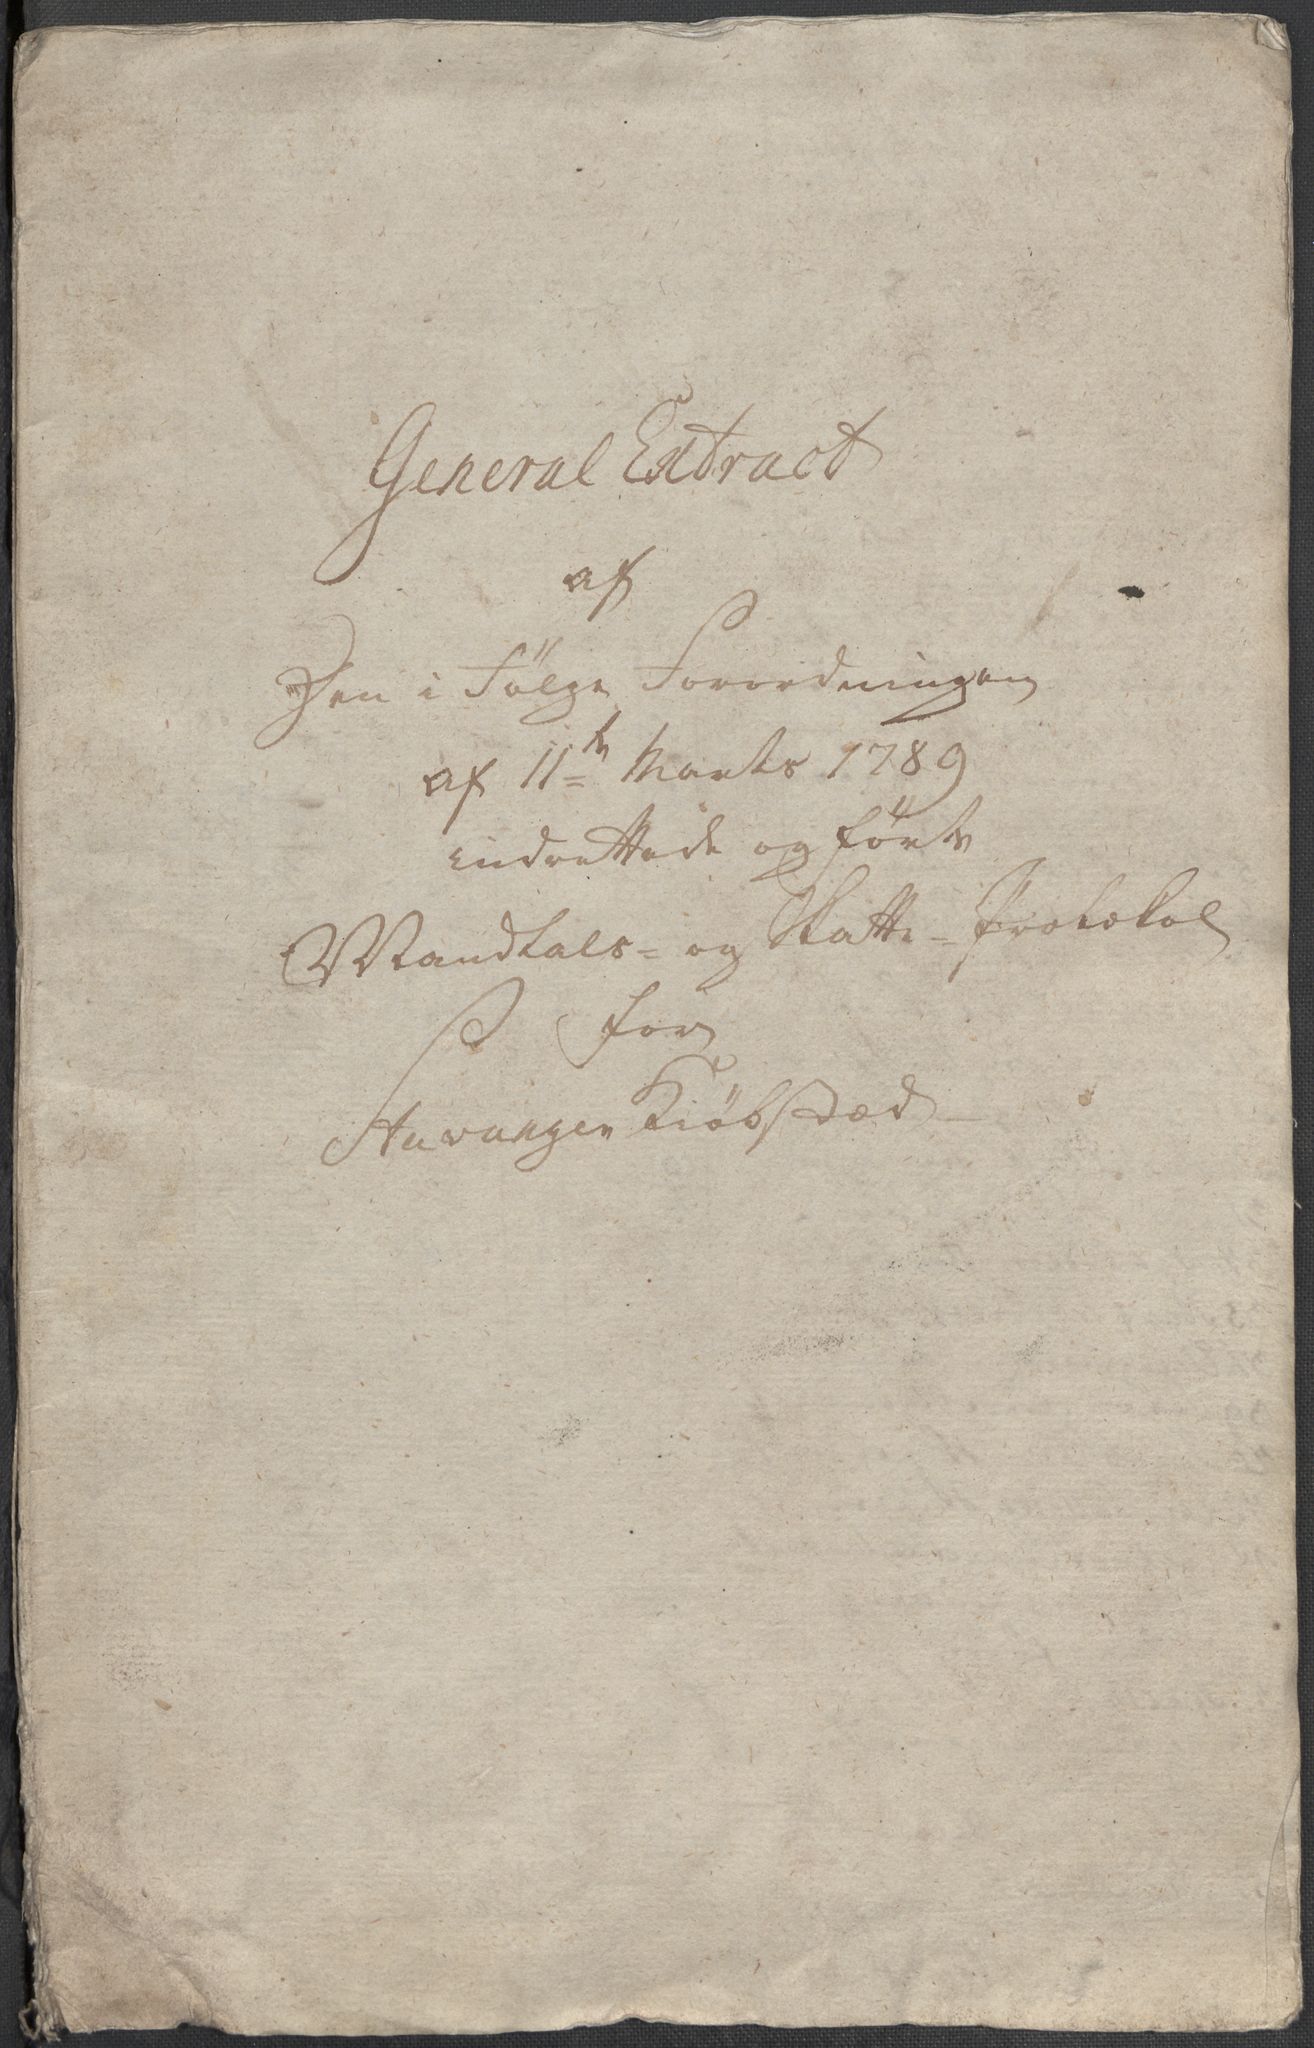 General Extract
af
Den i Følge Forordningen
af 11te Marts 1789
indrettede og førte
Mandtals- og Skatte-Protokol
for
Stavanger Kiöbstæd